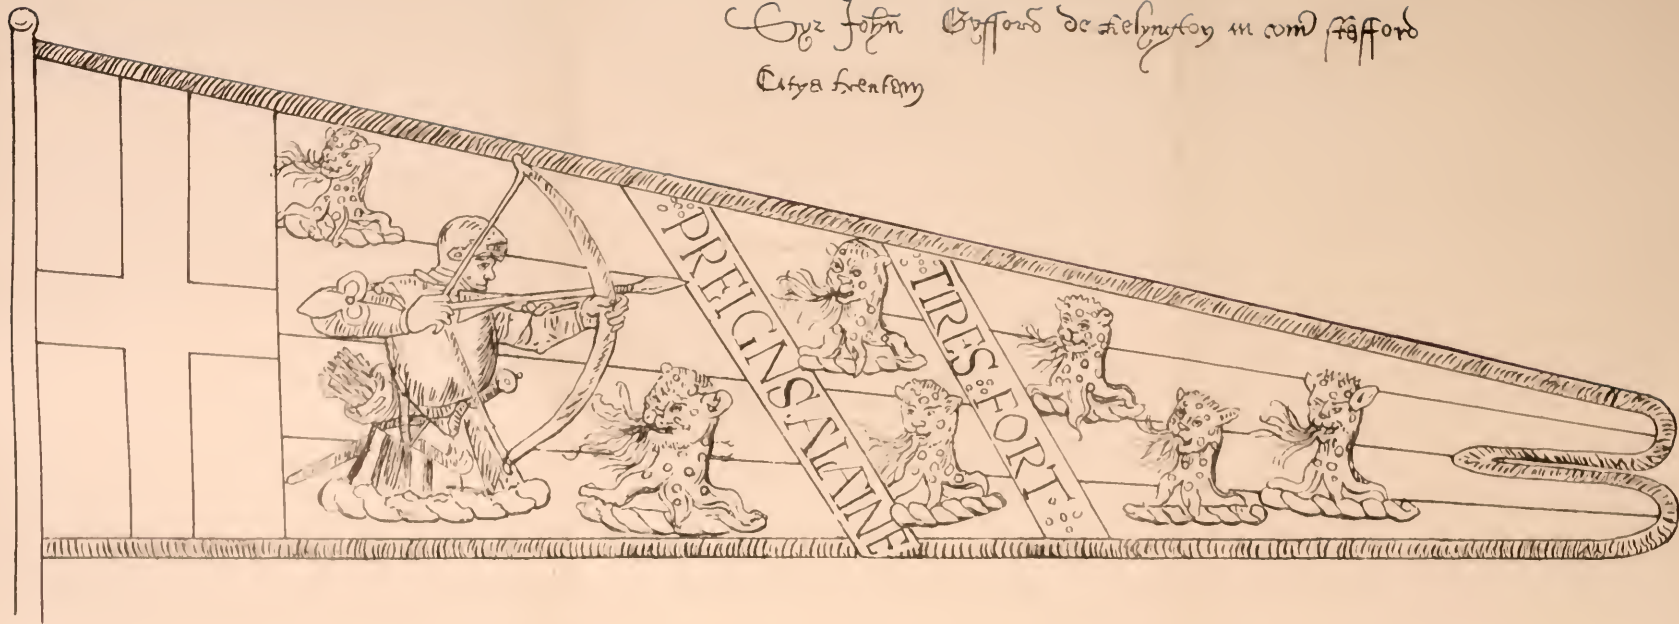 Syr John Gyfford de Chelyngton in com̃ Stafford
Citra trentam
PREIGNS.ALAINE
TIRES FORT